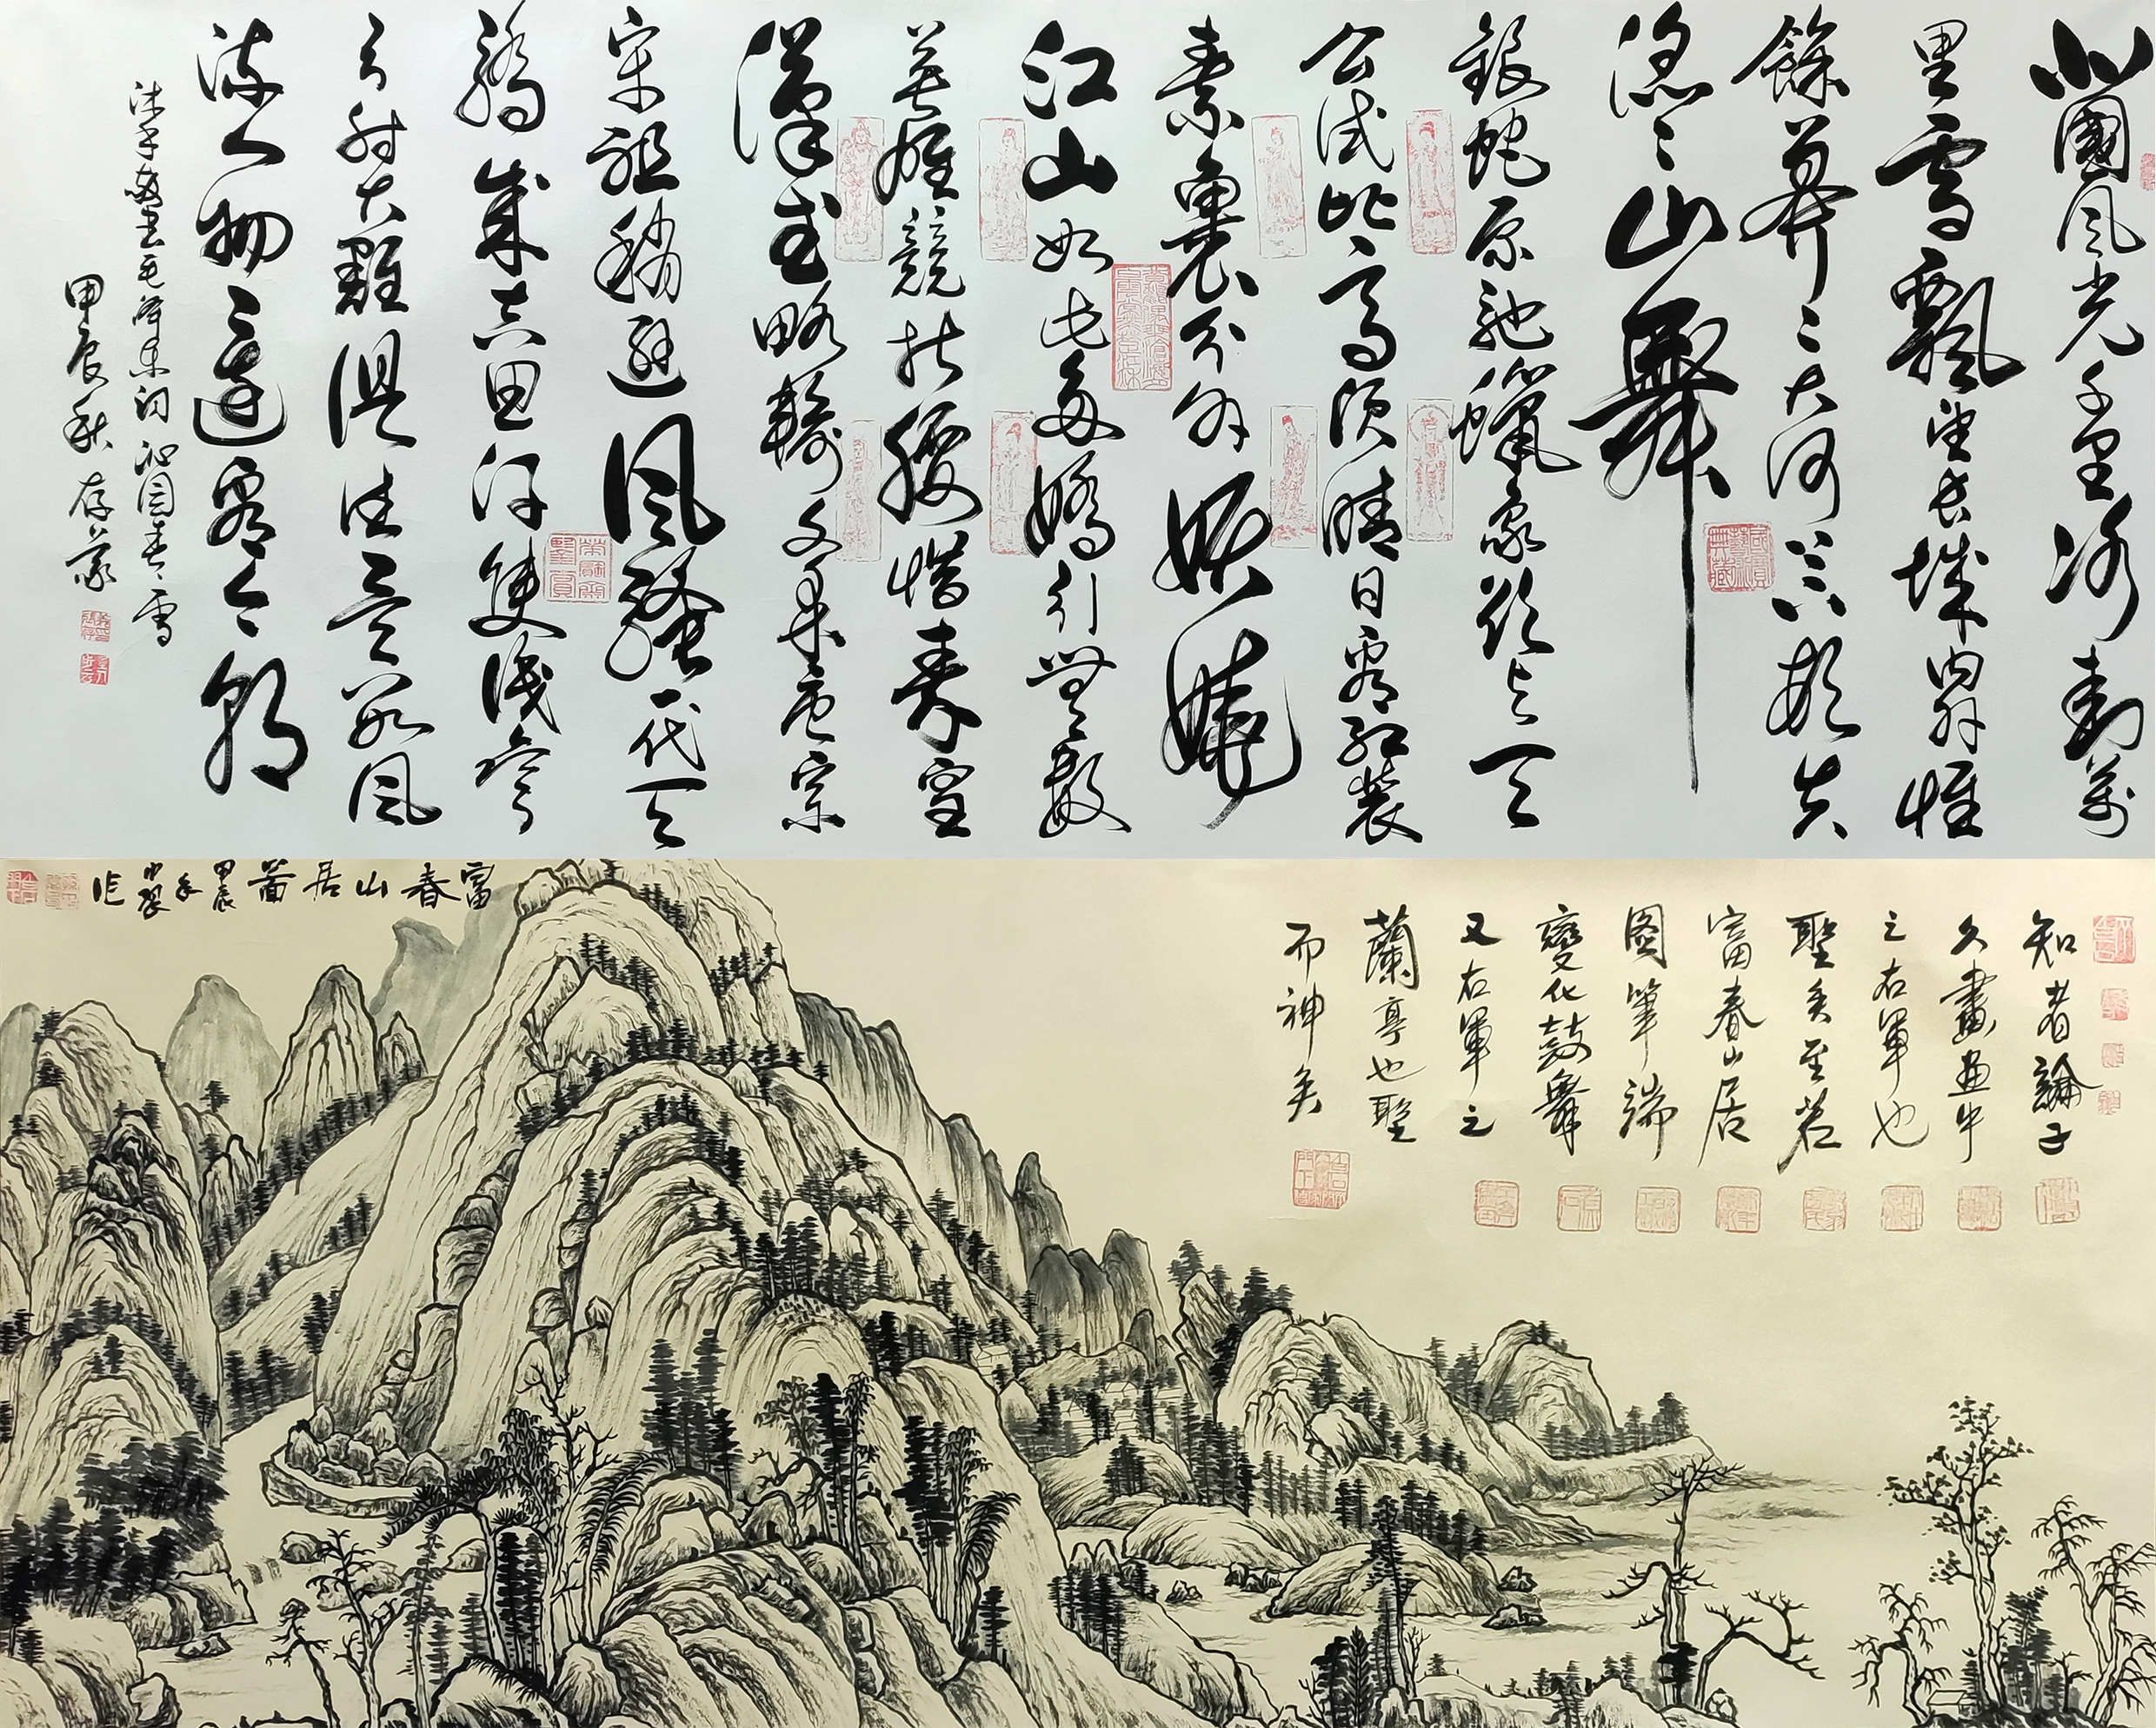 北國風光千里冰封萬
里雪飄望长城内外惟
餘莽々大河上下頓失
滔々山舞
銀蛇原馳蠟象欲与天
公试比高須晴日看红裝
素裹分外妖嬈
江山如此多嬌引無數
英雄競折腰惜秦皇
漢武略輸文采唐宗
宋祖稍遜風騷一代天
驕成吉思汗隻識彎
弓射大雕俱往矣數風
流人物還看今朝
沐手敬書毛澤東词沁园春雪
甲辰秋存義
知者論子
久畫畫中
之右軍也
聖矣至若
富春山居
图筆端
變化鼓舞
又右軍之
蘭亭也聖
而神矣
富春山居圖
甲辰
年
作